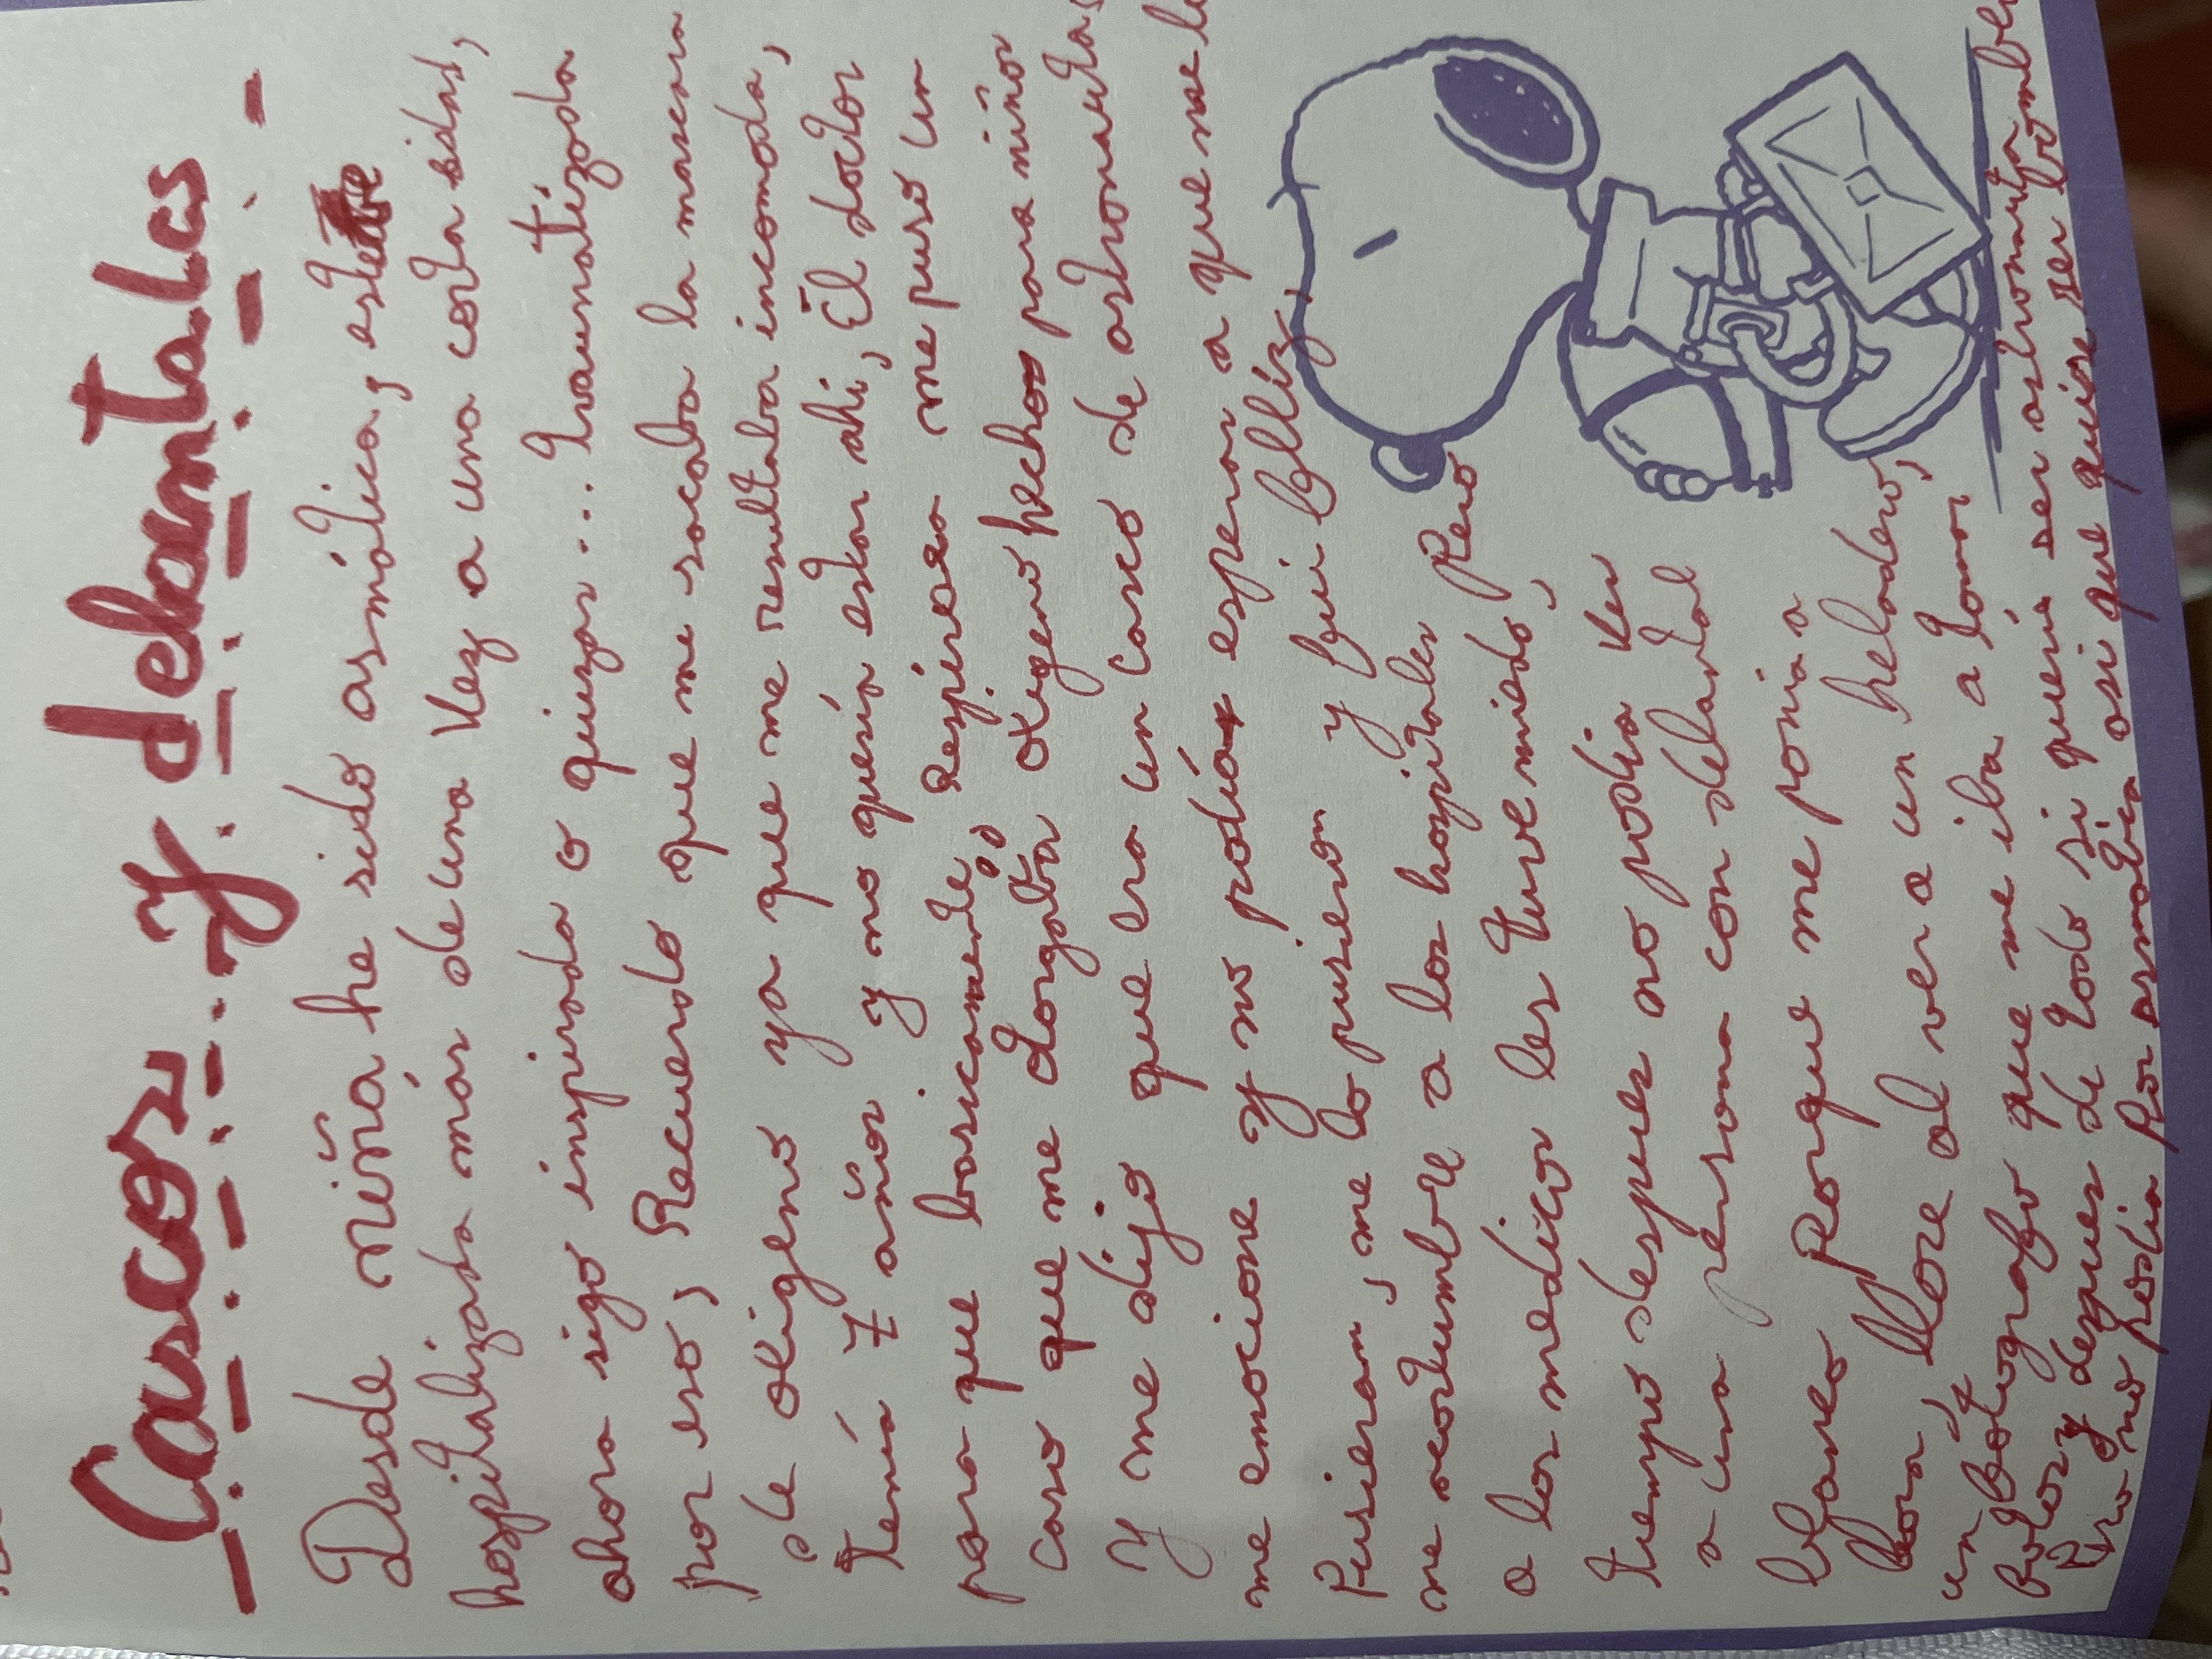 Cascos y delantales
Desde niña he sido asmática, este
hospitalizada más de una vez a una corta edad,
ahora sigo inspirada o quizas... traumatizada
por eso, Recuerdo que me sacaba la mascara
de oxigeno ya que me resultaba incomoda,
tenía 7 años y no quería estar ahi, El doctor
para que basicamente, respirara me puso un
casco que me otorgaba oxigeno hecho para niños
y me dijo que era un casco de astronauta,
me emocione y no podía esperar a que me lo
Pusieran, me lo pusieron y fui feliz,
me acostumbre a los hospitales Pero
a los medicos les tuve miedo,
tiempo despues no podia ver
a una persona con delantal
blanco Porque me ponia a
llorar, llore al ver a un heladero,
un fotografo que me iba a tomar
fotos y despues de todo si queria ser astronauta
Pero no podia Por asmatica asi que quise ser bombe